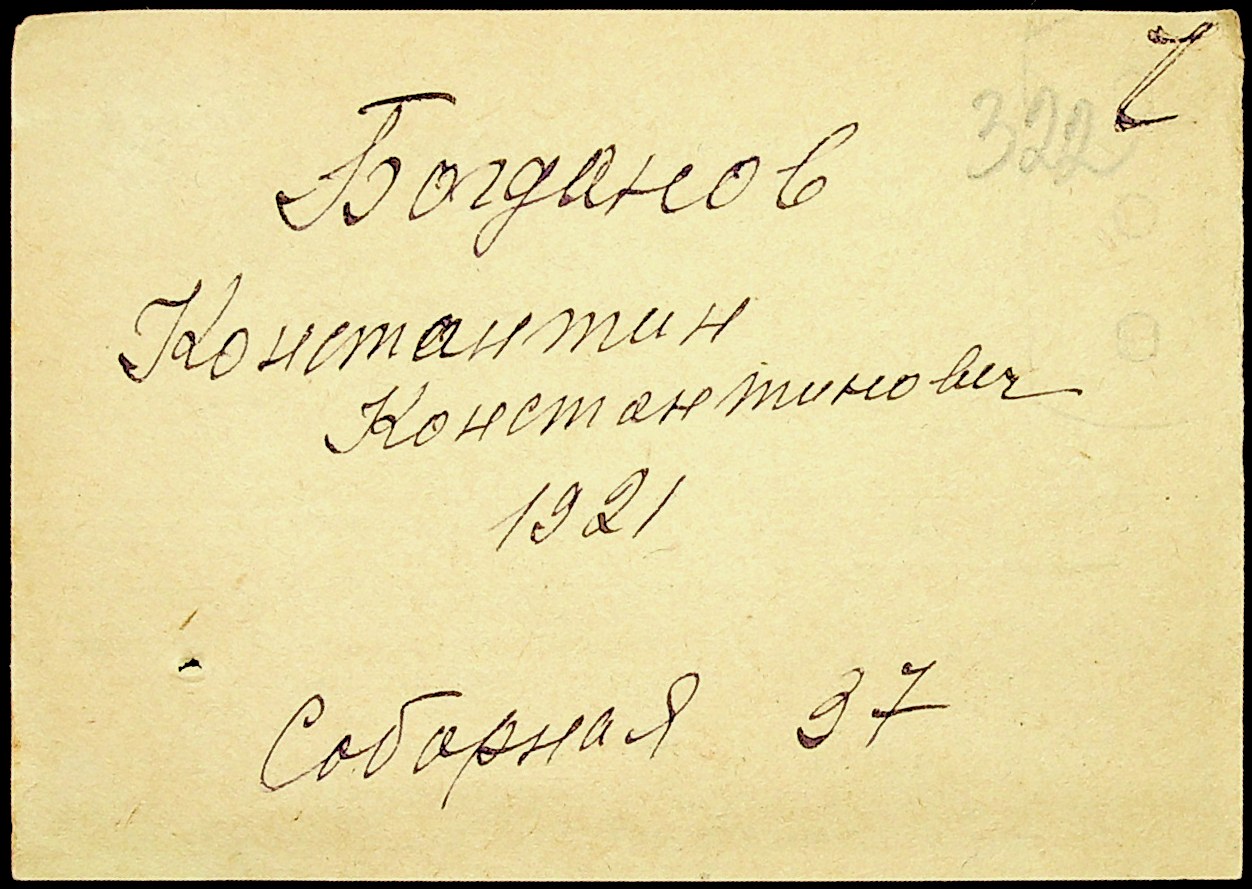 322
Богданов
Константин
Константинович
1921
Соборная 37